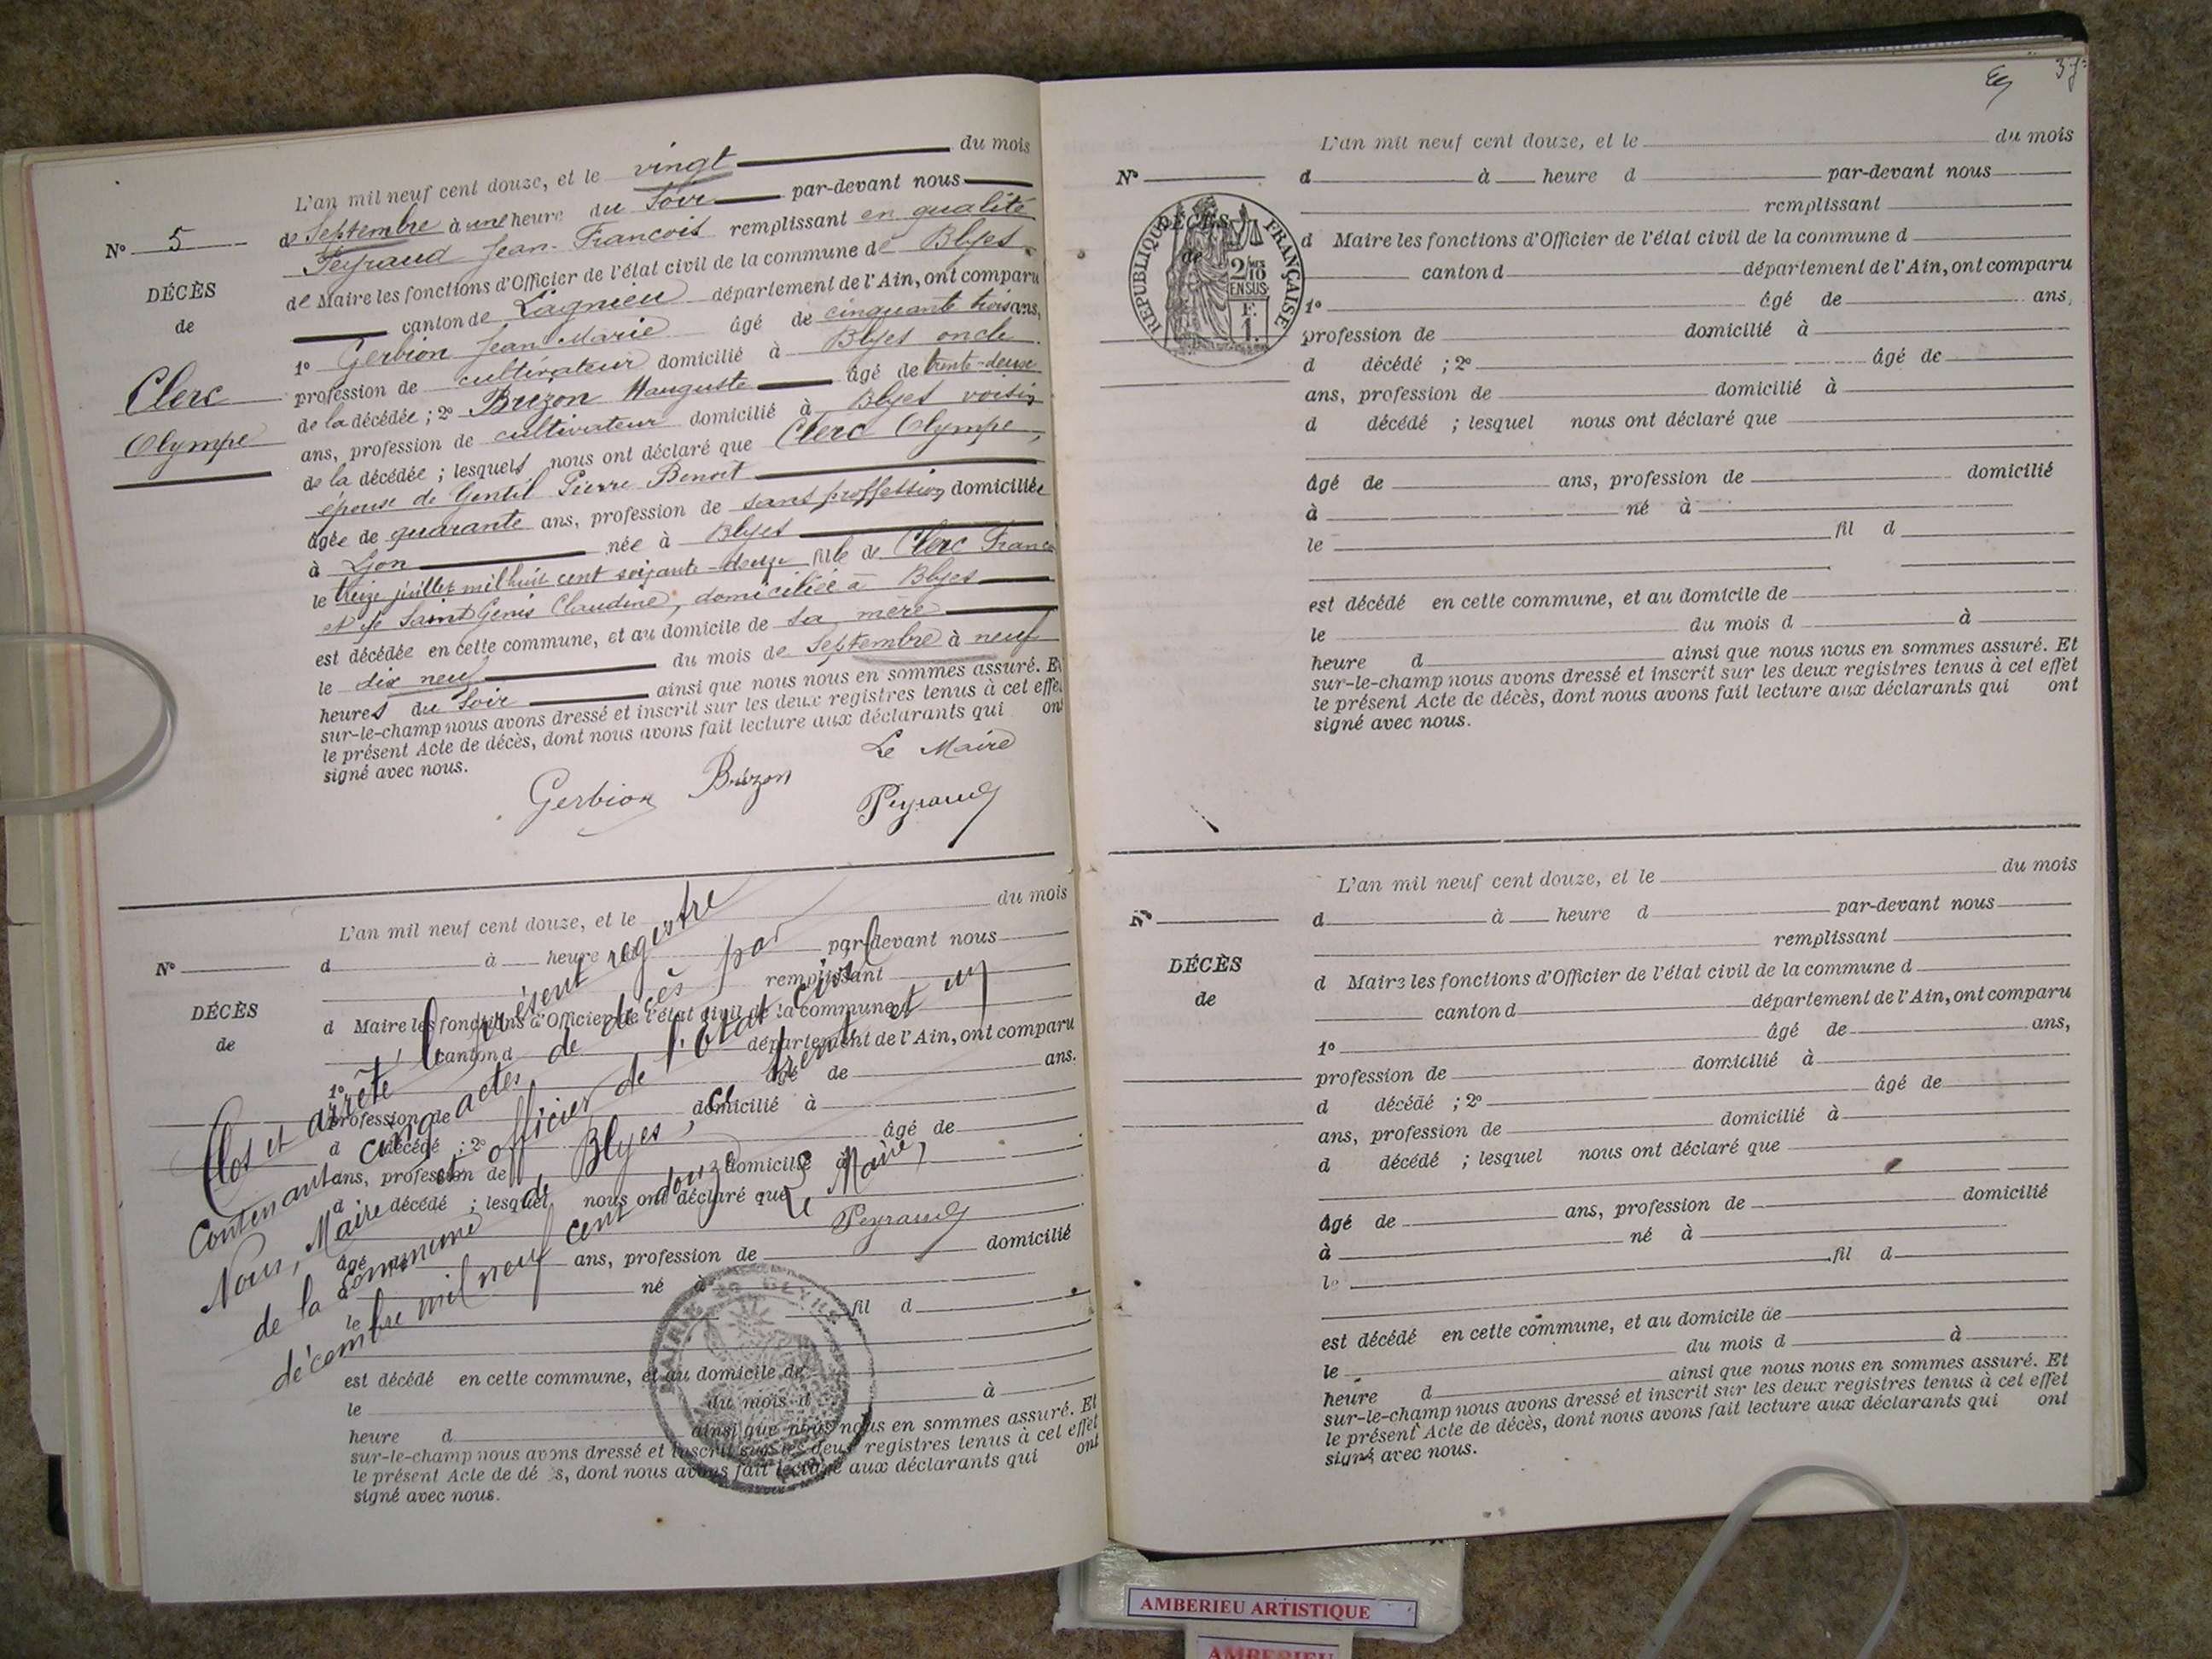 L'an mil neuf cent douze, et le vingt du mois
de Septembre à une heure du Soir par-devant nous
Peyraud Jean-François remplissant en qualité
de Maire les fonctions d'Officier de l'état civil de la commune de Blyes
canton de Lagnieu département de l'Ain, ont comparu
1º Gerbion Jean Marie âgé de cinquante trois ans,
profession de cultivateur domicilié à Blyes oncle
de la décédée ; 2º Brizon Hauguste âgé de trente-deux
ans, profession de cultivateur domicilié à Blyes voisin
de la décédée ; lesquels nous ont déclaré que Clerc Olympe,
épouse de Gentil Pierre Benoit
âgée de quarante ans, profession de sans proffession domiciliée
à Lyon née à Blyes
le treize juillet mil huit cent soixante-douze fille de Clerc Franc
et de Saint Genis Claudine, domiciliée à Blyes
est décédée en cette commune, et au domicile de sa mère
le dix neuf du mois de Septembre à neuf
heures du Soir ainsi que nous nous en sommes assuré. Et
sur-le-champ nous avons dressé et inscrit sur les deux registres tenus à cet effet
le présent Acte de décès, dont nous avons fait lecture aux déclarants qui ont
signé avec nous.
Nº 5
DÉCÈS
de
Clerc
Olympe
Le Maire
Gerbion Brizon Peyraud
L'an mil neuf cent douze, et le du mois
Nº
DÉCÈS
de
d à heure d par-devant nous
remplissant
d Maire les fonctions d'Officier de l'état civil de la commune
canton d département de l'Ain, ont comparu
1º âgé de ans.
profession de domicilié à
d décédé ; 2º âgé de
ans, profession de domicilié à
d décédé ; lesquel nous ont déclaré que
âgé de ans, profession de domicilié
à né à
le fil d
est décédé en cette commune, et au domicile de
le du mois d à
heure d ainsi que nous nous en sommes assuré. Et
sur-le-champ nous avons dressé et inscrit sur les deux registres tenus à cet effet
le présent Acte de dé s, dont nous avons fait lecture aux déclarants qui ont
signé avec nous.
Clos et arrêté le présent registre
Contenant cinq actes de décès par
Nous, Maire et officier de l'état civil
de la commune de Blyes, ce trente et un
décembre mil neuf cent douze
Le Maire,
Peyraud
MAIRIE DE BLYES
L'an mil neuf cent douze, et le du mois
Nº
RÉPUBLIQUE FRANÇAISE
DÉCÈS
de
2/10 EN SUS
F. 1.
d à heure d par-devant nous
remplissant
d Maire les fonctions d'Officier de l'état civil de la commune d
canton d département de l'Ain, ont comparu
1º âgé de ans,
profession de domicilié à
d décédé ; 2º âgé de
ans, profession de domicilié à
d décédé ; lesquel nous ont déclaré que
âgé de ans, profession de domicilié
à né à
le fil d
est décédé en cette commune, et au domicile de
le du mois d à
heure d ainsi que nous nous en sommes assuré. Et
sur-le-champ nous avons dressé et inscrit sur les deux registres tenus à cet effet
le présent Acte de décès, dont nous avons fait lecture aux déclarants qui ont
signé avec nous.
L'an mil neuf cent douze, et le du mois
Nº
DÉCÈS
de
d à heure d par-devant nous
remplissant
d Maire les fonctions d'Officier de l'état civil de la commune d
canton d département de l'Ain, ont comparu
1º âgé de ans,
profession de domicilié à
d décédé ; 2º âgé de
ans, profession de domicilié à
d décédé ; lesquel nous ont déclaré que
âgé de ans, profession de domicilié
à né à
le fil d
est décédé en cette commune, et au domicile de
le du mois d à
heure d ainsi que nous nous en sommes assuré. Et
sur-le-champ nous avons dressé et inscrit sur les deux registres tenus à cet effet
le présent Acte de décès, dont nous avons fait lecture aux déclarants qui ont
signé avec nous.
AMBERIEU ARTISTIQUE
AMBERIEU